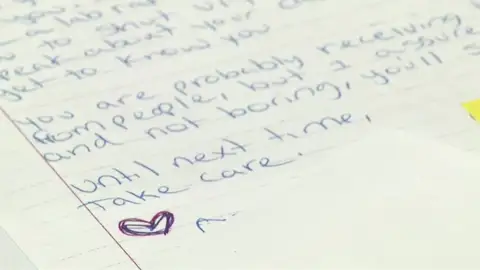 a lab rat
to shut
speak about your
get to know you
You are probably receiving
from people, but I assure
and not boring, you'll
until next time,
Take care.